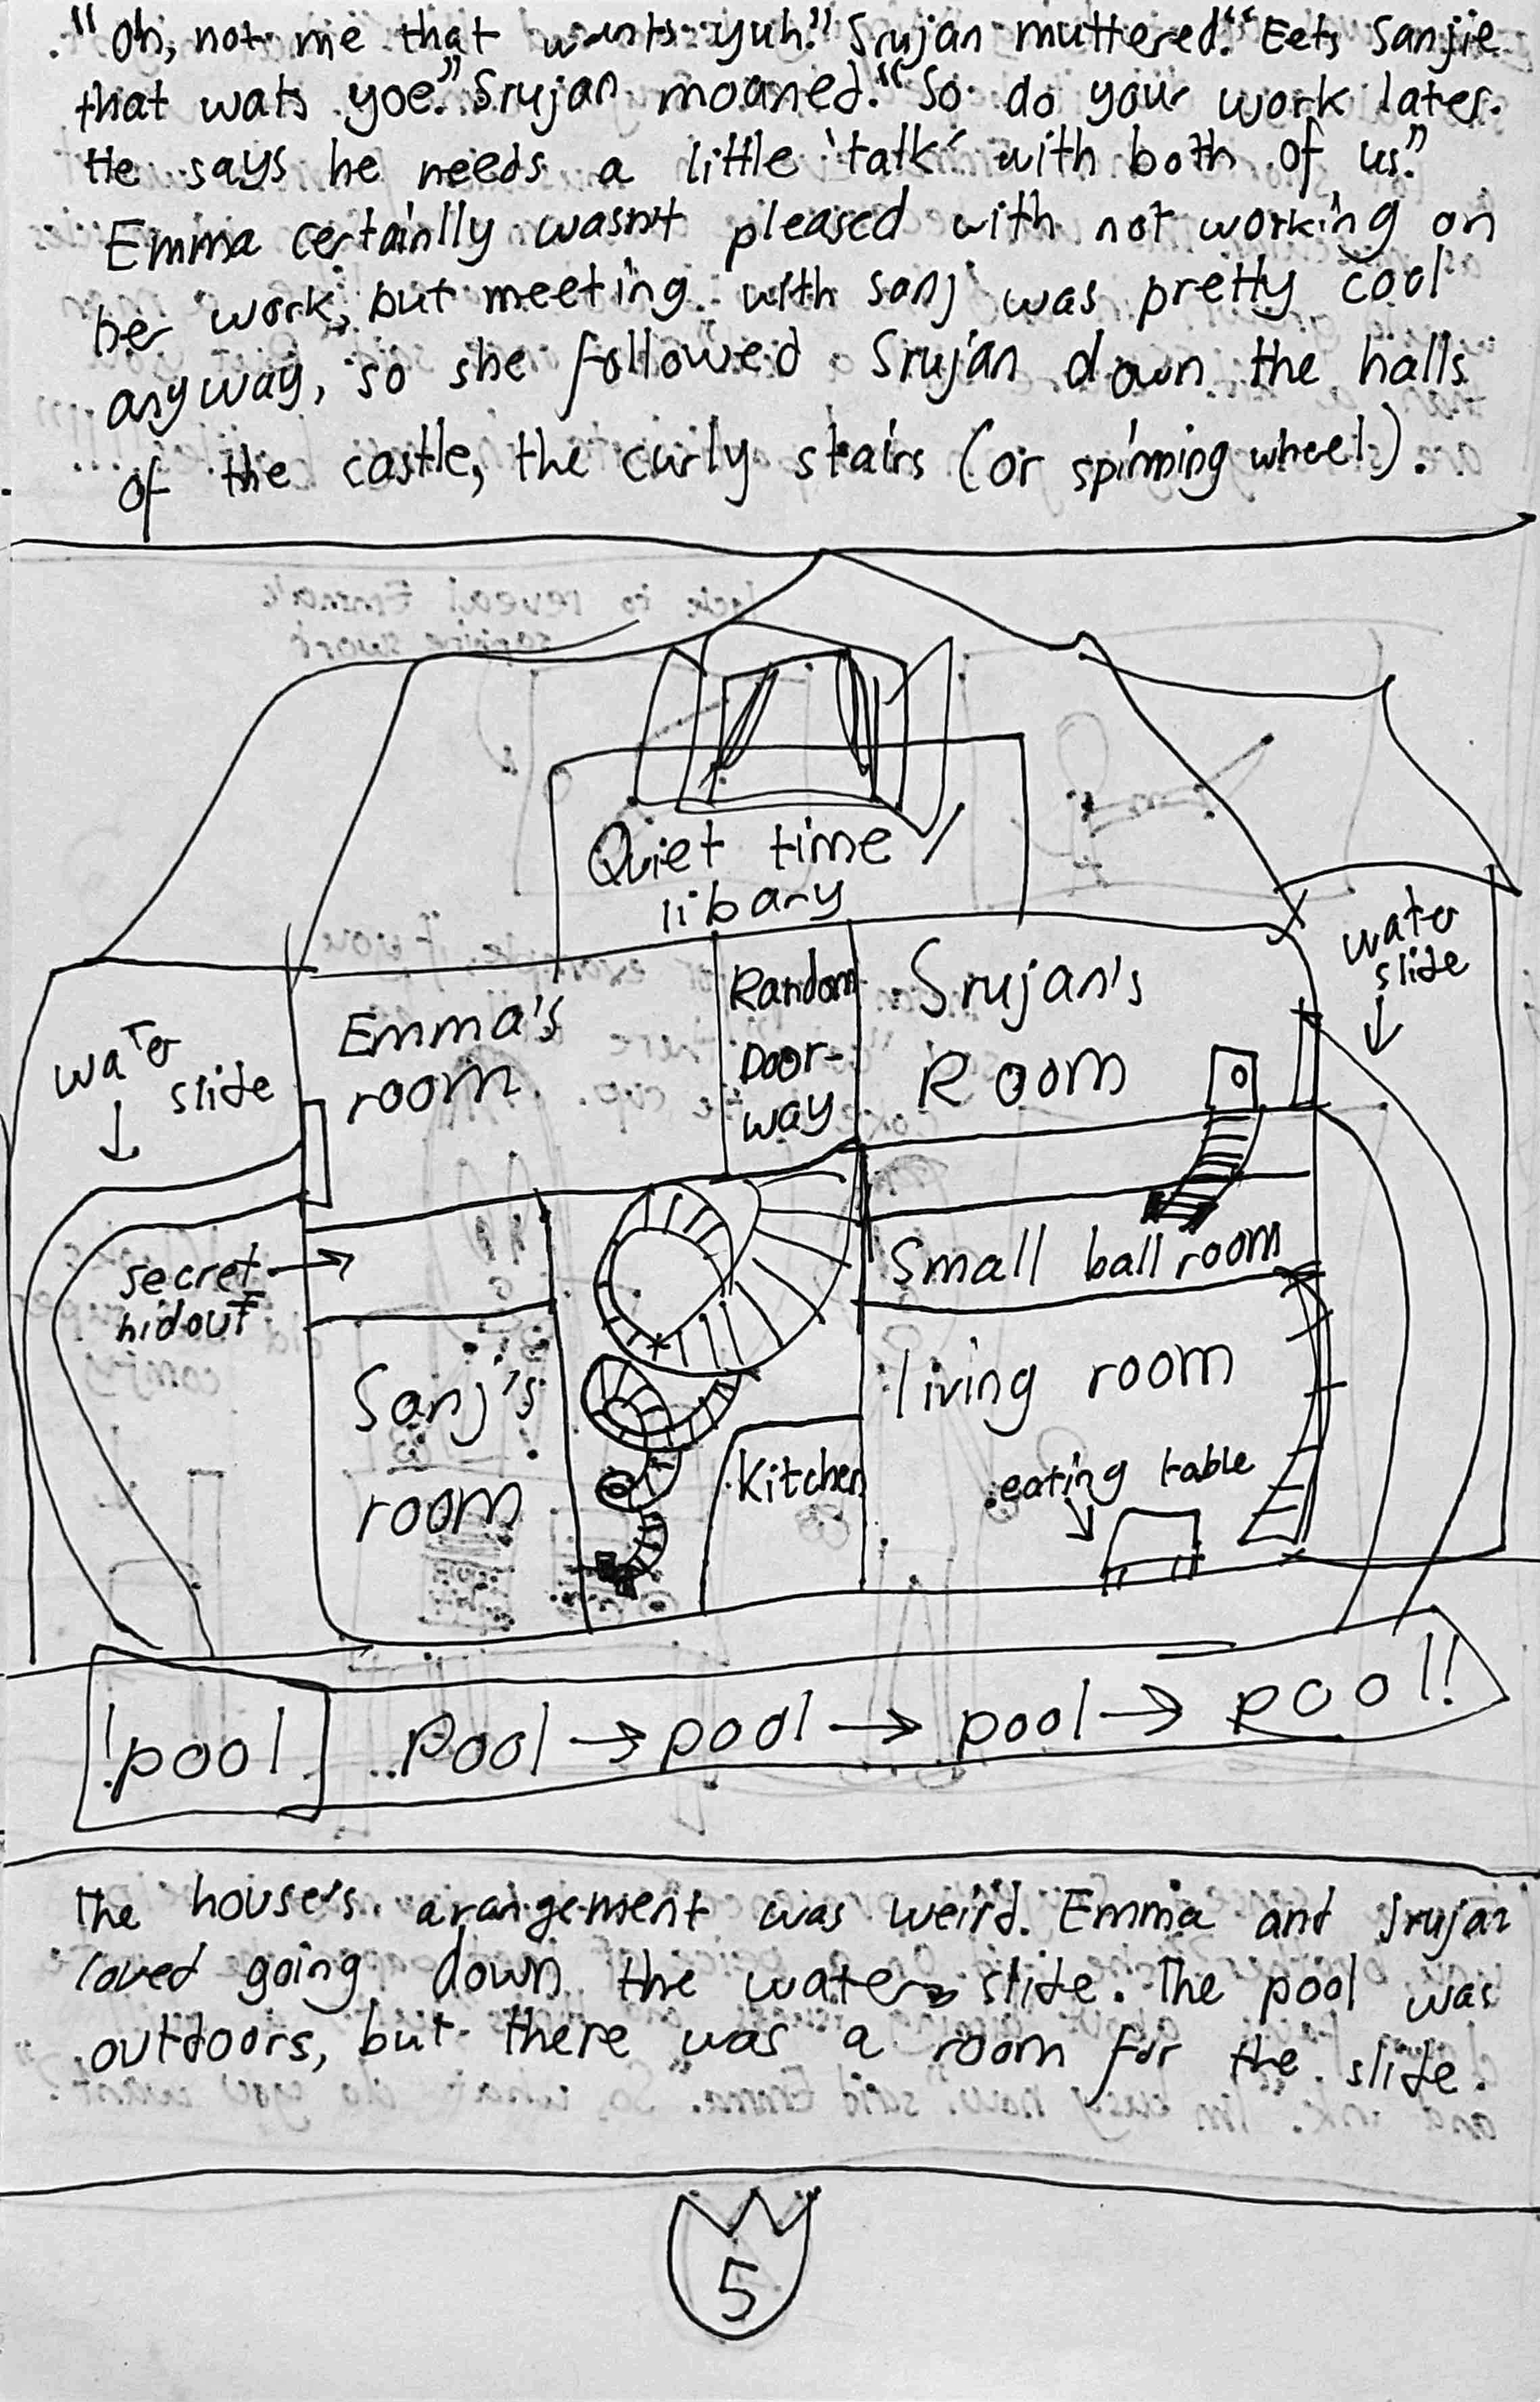 "Oh, not me that wants yuh." Srujan muttered. "Eets Sanjie
that wats yoe." Srujan moaned. "So do your work later.
He says he needs a little 'talk' with both of us."
Emma certainlly wasn't pleased with not working on
her work, but meeting with sanj was pretty cool
anyway, so she followed Srujan down the halls
of the castle, the curly stairs (or spinning wheel).
Quiet time
libary
water
slide
Emma's
room
Random
Door-
way
Srujan's
Room
water
slide
secret
hidout
Small ballroom
Sanj's
room
living room
Kitchen
eating table
!pool
Pool → pool → pool → pool!
The house's arangement was weird. Emma and Srujan
loved going down the water slide. The pool was
outdoors, but there was a room for the slide.
5